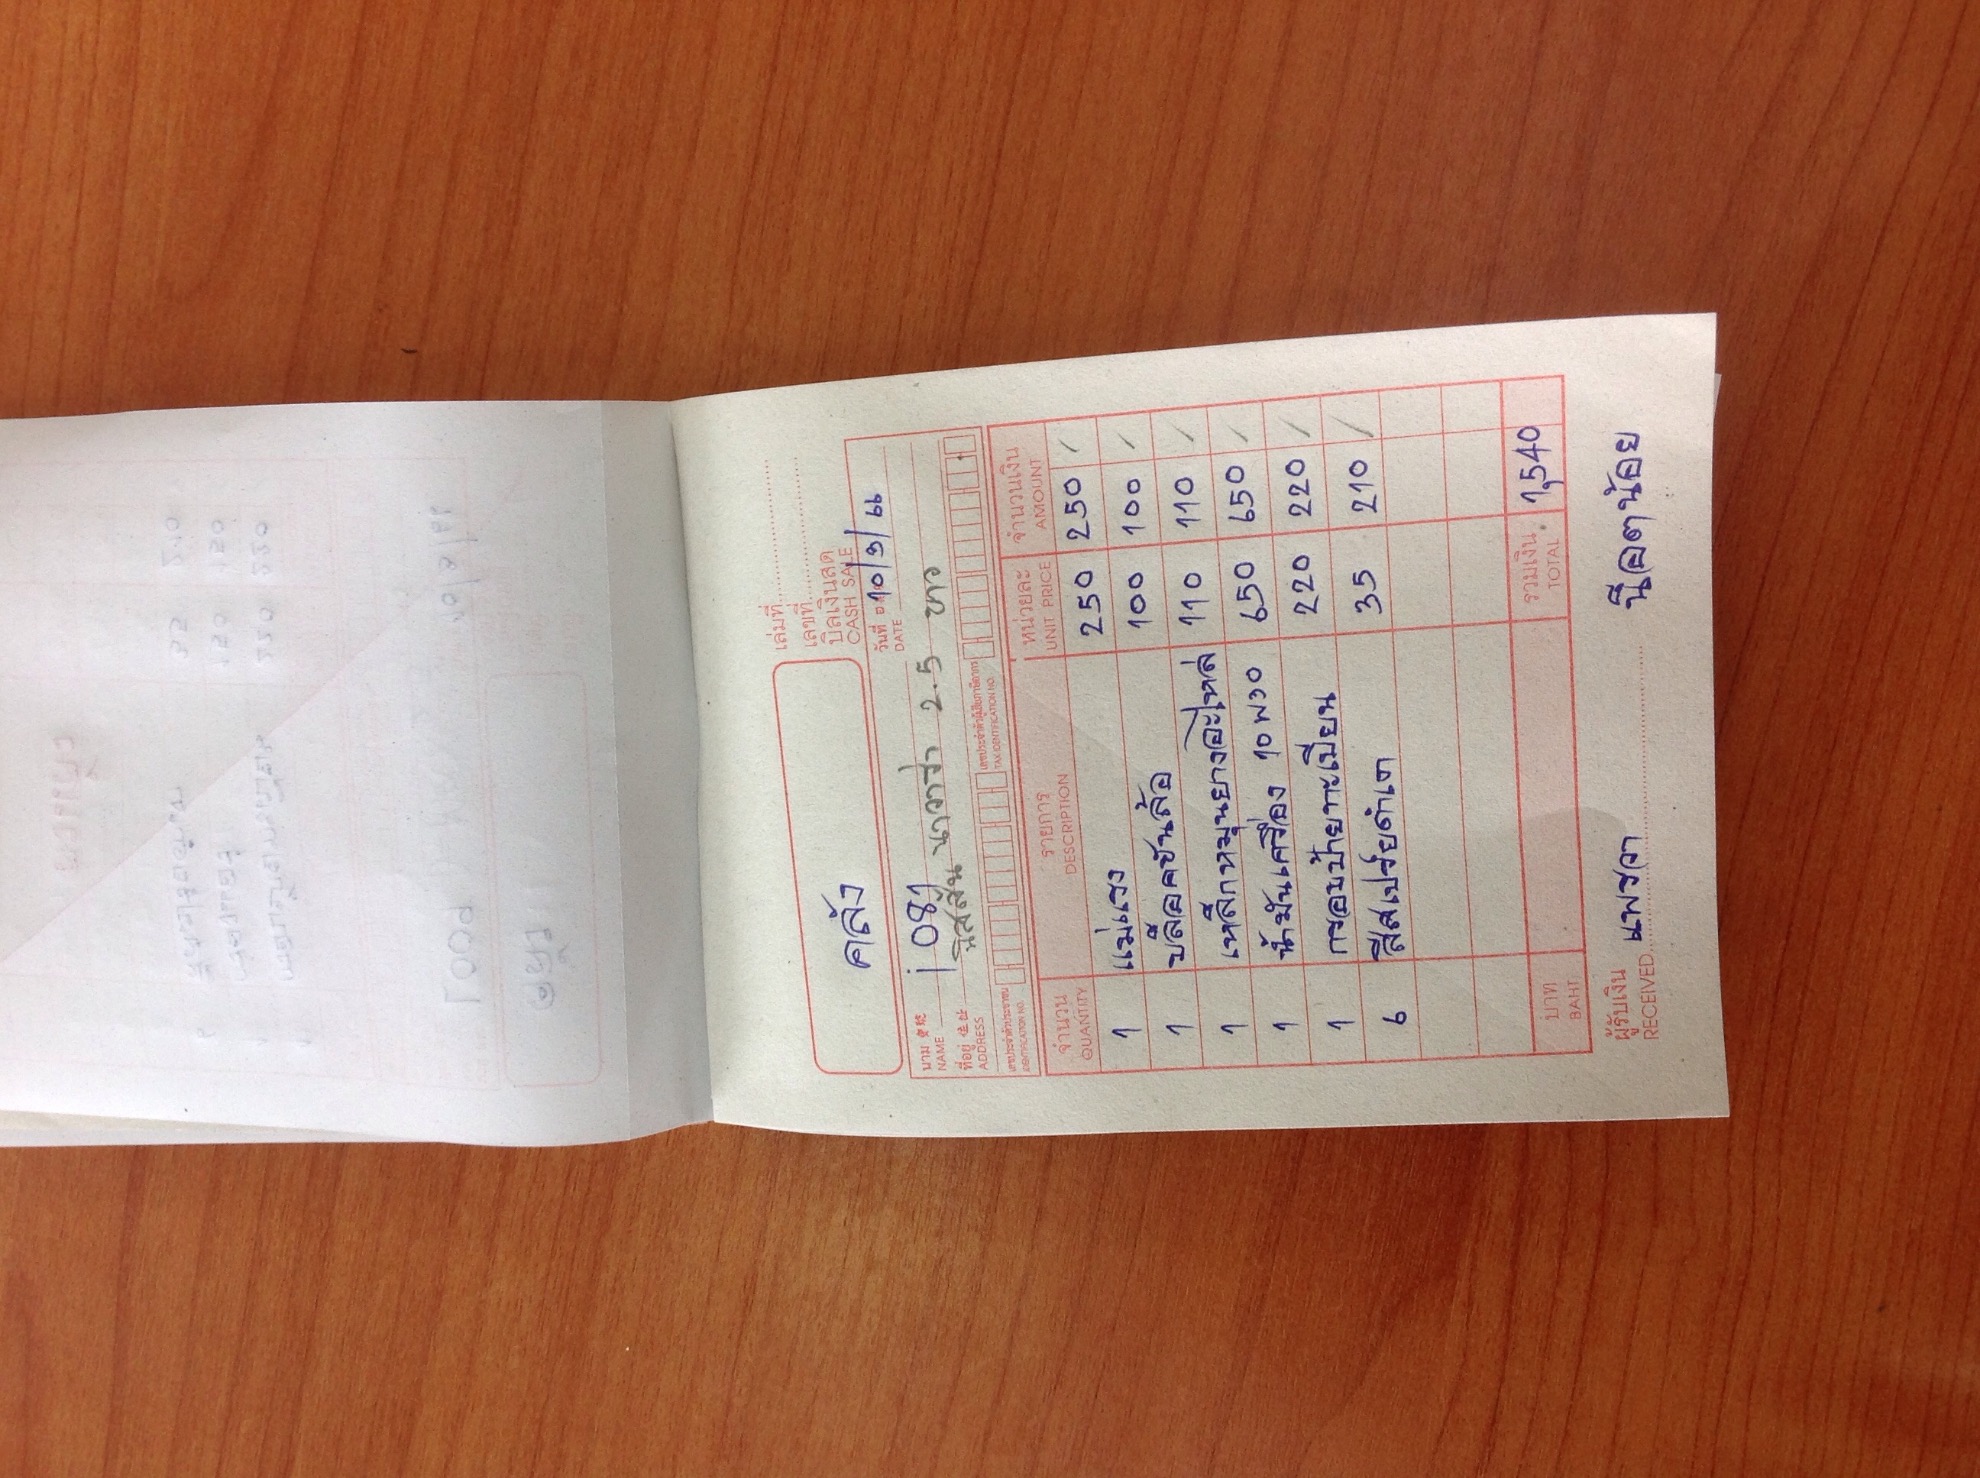 เล่มที่
เลขที่
บิลเงินสด
CASH SALE
คลัง
วันที่ 10/3/66
DATE
นาม
NAME
1081
ที่อยู่ 住址 นิสสัน นาวาร่า 2.5 ขาว
ADDRESS
เลขประจำตัวประชาชน เลขประจำตัวผู้เสียภาษีอากร
IDENTIFICATION NO. TAX IDENTIFICATION NO.
จำนวน รายการ หน่วยละ จำนวนเงิน
QUANTITY DESCRIPTION UNIT PRICE AMOUNT
1 แม่แรง 250 250 /
1 บล็อคขันล้อ 100 100 /
1 เหล็กหมุนยางอะไหล่ 110 110 /
1 น้ำมันเครื่อง 10 พวง 650 650 /
1 กรอบป้ายทะเบียน 220 220 /
6 สีสเปร์ยดำเต 35 210 /
บาท รวมเงิน 1,540
BAHT TOTAL
ผู้รับเงิน แพรวา น๊อตน้อย
RECEIVED